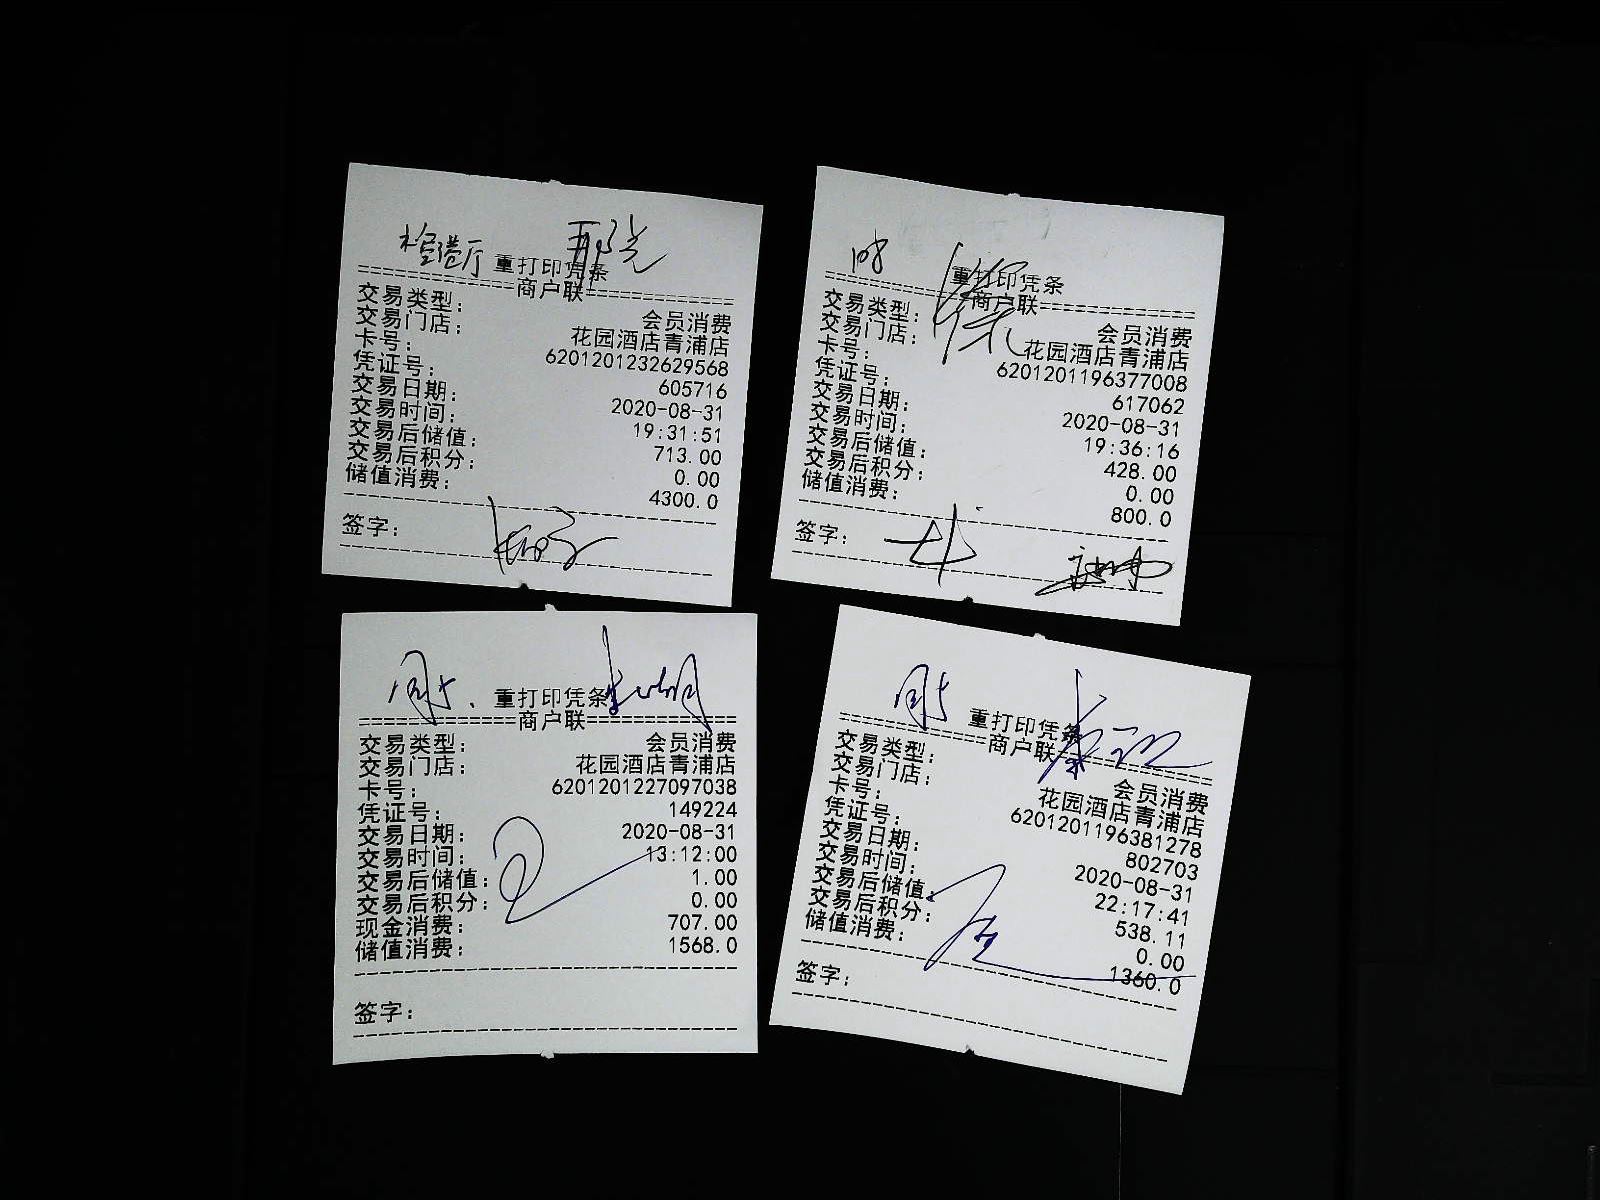 重打印凭条
==============商户联==============
交易类型： 会员消费
交易门店： 花园酒店青浦店
卡号： 6201201232629568
凭证号： 605716
交易日期： 2020-08-31
交易时间： 19:31:51
交易后储值： 713.00
交易后积分： 0.00
储值消费： 4300.0
签字：
108
重打印凭条
==============商户联==============
交易类型： 会员消费
交易门店： 花园酒店青浦店
卡号： 6201201196377008
凭证号： 617062
交易日期： 2020-08-31
交易时间： 19:36:16
交易后储值： 428.00
交易后积分： 0.00
储值消费： 800.0
签字：
重打印凭条
==============商户联==============
交易类型： 会员消费
交易门店： 花园酒店青浦店
卡号： 6201201227097038
凭证号： 149224
交易日期： 2020-08-31
交易时间： 13:12:00
交易后储值： 1.00
交易后积分： 0.00
现金消费： 707.00
储值消费： 1568.0
签字：
重打印凭条
==============商户联==============
交易类型： 会员消费
交易门店： 花园酒店青浦店
卡号： 6201201196381278
凭证号： 802703
交易日期： 2020-08-31
交易时间： 22:17:41
交易后储值： 538.11
交易后积分： 0.00
储值消费： 1360.0
签字：